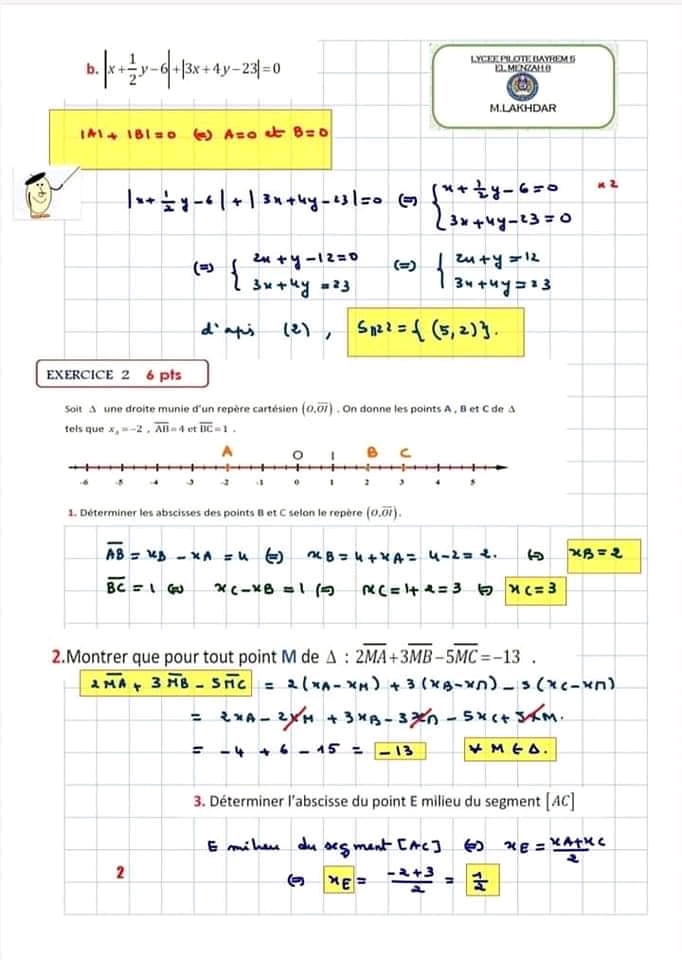 b. |x+1/2y−6|+|3x+4y−23|=0
LYCEE PILOTE BAYREM 5
EL MENZAH 8
M.LAKHDAR
|A| + |B| = 0 (=) A=0 et B=0
|x+1/2y−6| + |3x+4y−23|=0 (=) {x+1/2y−6=0 ×2
3x+4y−23=0
(=) {2x+y−12=0 (=) {2x+y=12
3x+4y=23 3x+4y=23
d'apès (2), SIR² = {(5,2)}.
EXERCICE 2 6 pts
Soit Δ une droite munie d'un repère cartésien (O,OI). On donne les points A , B et C de Δ
tels que xₐ=−2 , AB=4 et BC=1 .
A O I B C
-6 -5 -4 -3 -2 -1 0 1 2 3 4 5
1. Déterminer les abscisses des points B et C selon le repère (O,OI).
AB = xB − xA = 4 (=) xB = 4+xA = 4−2 = 2. (=) xB = 2
BC = 1 (=) xC−xB = 1 (=) xC = 1+2 = 3 (=) xC = 3
2.Montrer que pour tout point M de Δ : 2MA+3MB−5MC=−13 .
2MA + 3MB − 5MC = 2(xA−xM) + 3(xB−xM) − 5(xC−xM)
= 2xA − 2xM + 3xB − 3xM − 5xC + 5xM.
= −4 + 6 − 15 = −13 ∀ M ∈ Δ.
3. Déterminer l'abscisse du point E milieu du segment [AC]
E milieu du segment [AC] (=) xE = xA+xC/2
2 (=) xE = −2+3/2 = 1/2